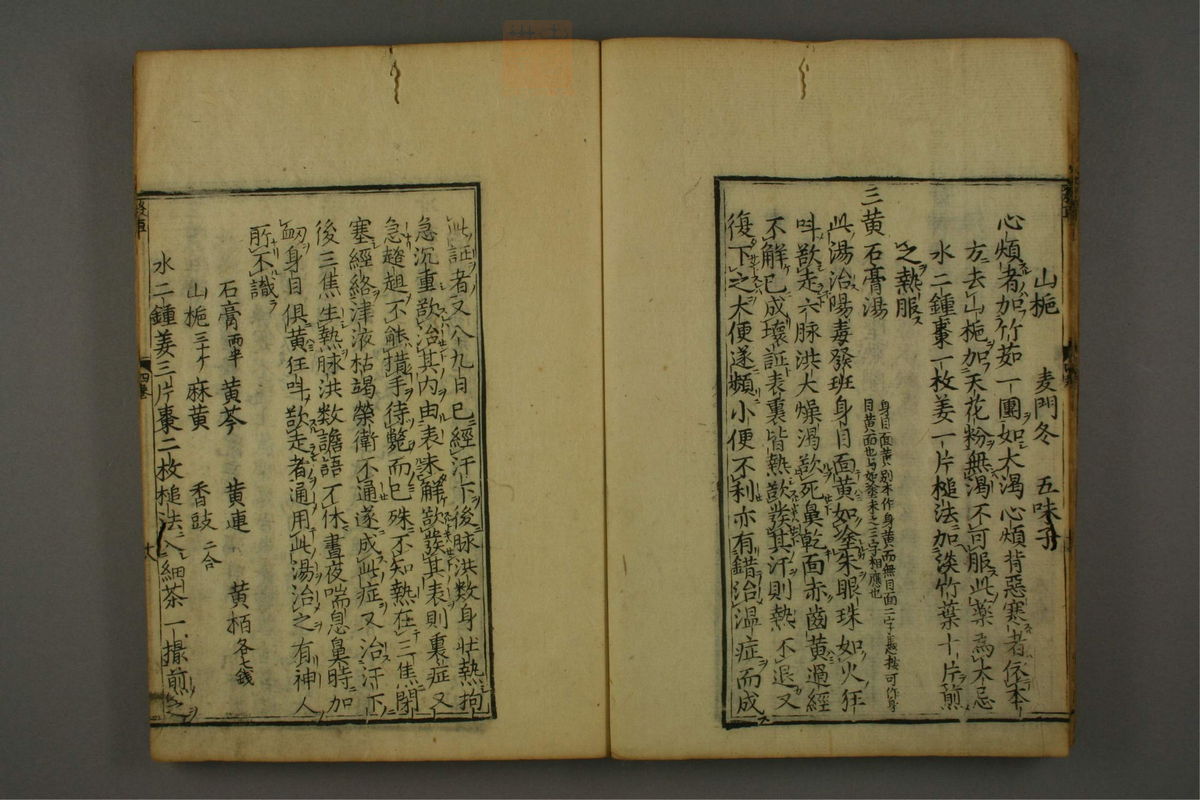 山梔　麦門冬　五味子
心煩者加竹茹一團如大渇心煩背惡寒者依本
方去山梔加天花粉無渇不可服此薬為大忌
水二鍾棗一枚姜一片槌法加淡竹葉十片煎
之熱服
三黄石膏湯
身目面黄別本作身黄而無目面二字愚按可作身
目黄面也与如塗朱之三字相應也
此湯治陽毒發班身目面黄如塗朱眼珠如火狂
呌欲走六脉洪大燥渇欲死鼻乾面赤齒黄過經
不解已成壊証表裏皆熱欲發其汗則熱不退又
復下之大便遂頻小便不利亦有錯治温症而成
此証者又八九日已經汗下後脉洪数身壮熱拘
急沉重欲治其内由表未解欲發其表則裏症又
急趑趄不能措手待斃而已殊不知熱在三焦閉
塞經絡津液枯竭榮衛不通遂成此症又治汗下
後三焦生熱脉洪数譫語不休晝夜喘息鼻時加
衂身目俱黄狂呌欲走者通用此湯治之有神人
所不識
石膏兩半　黄芩　黄連　黄栢各七錢
山梔三十ケ　麻黄　香豉二合
水二鍾姜三片棗二枚槌法入細茶一撮煎之
四巻